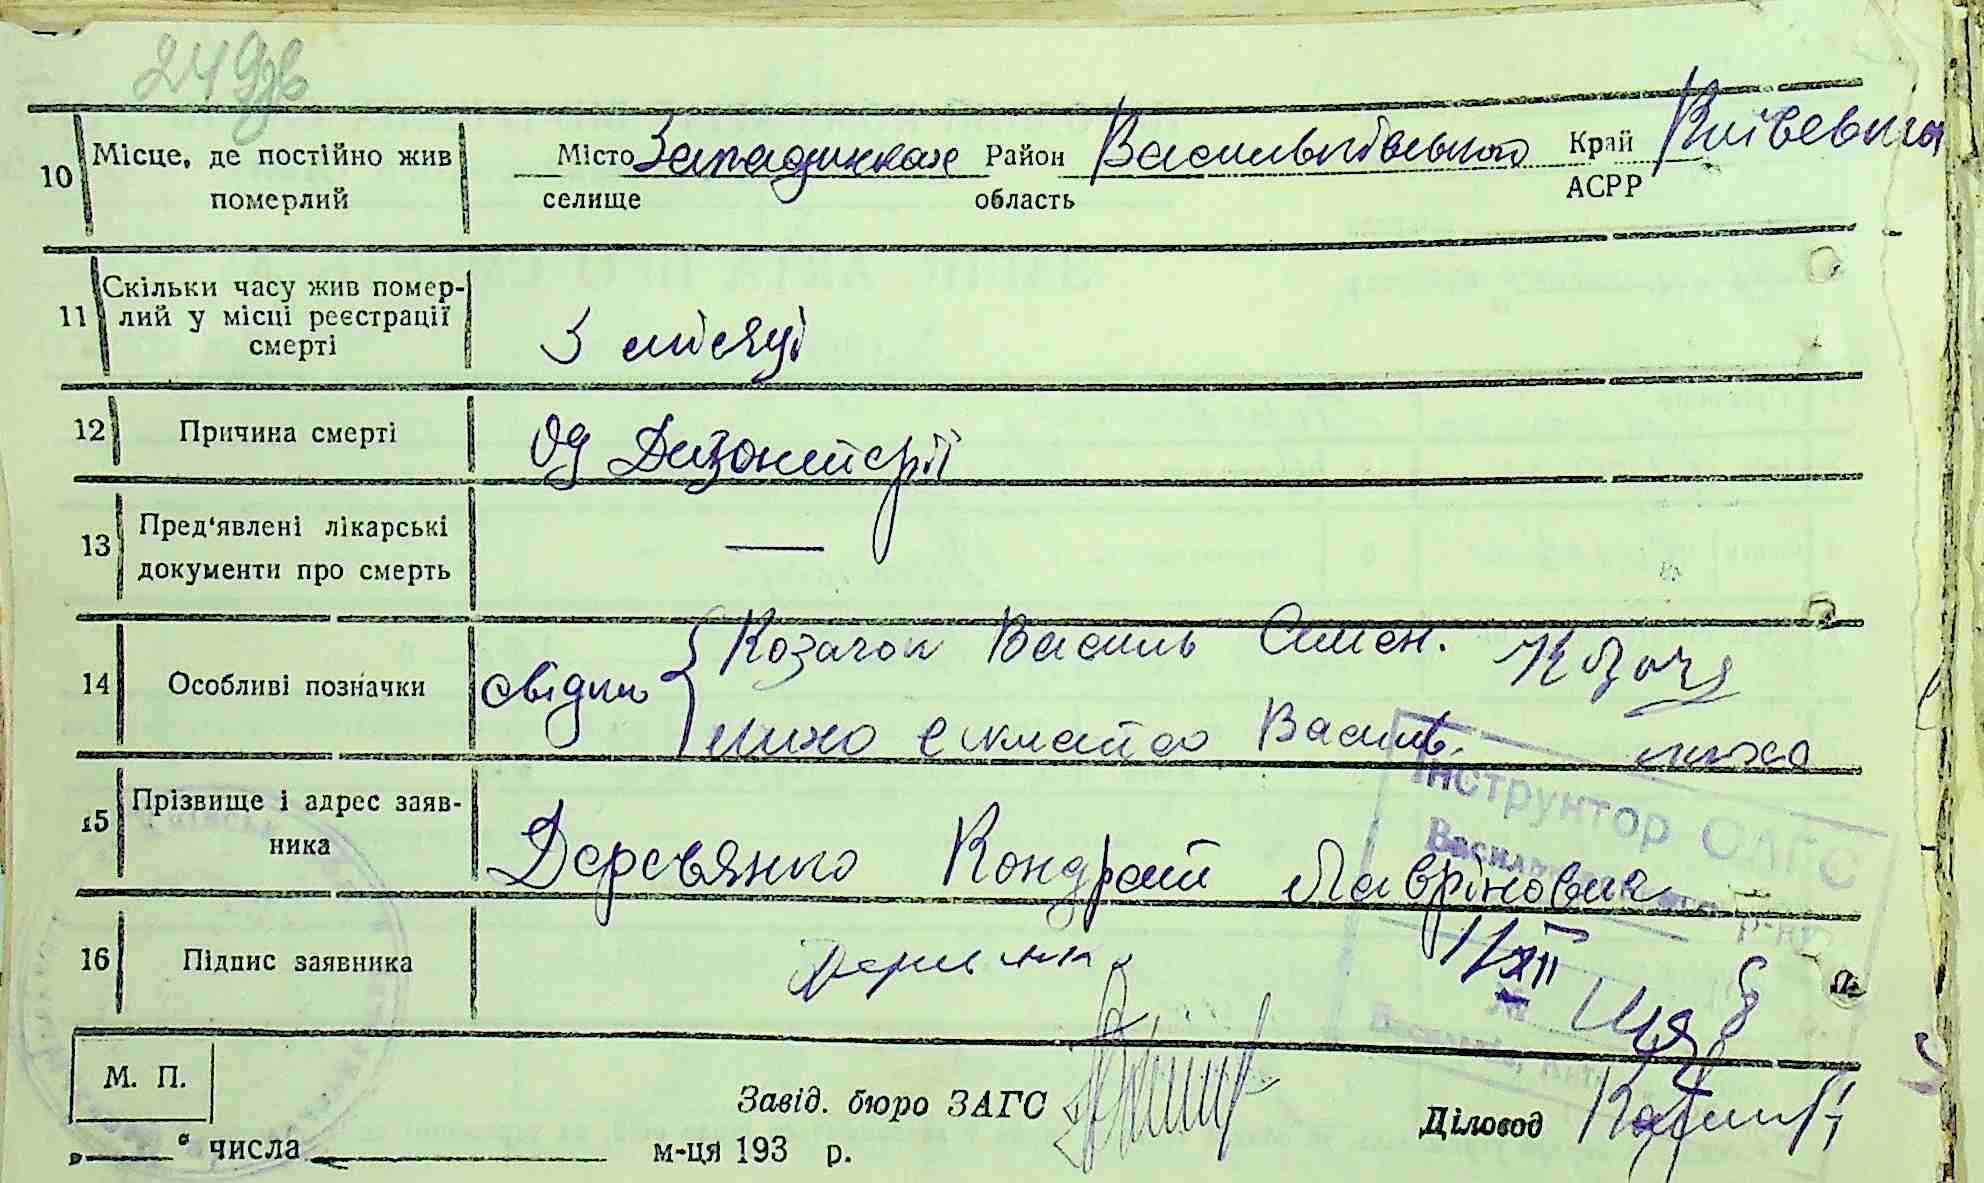 24
10 Місце, де постійно жив померлий Місто селище Западинках Район область Васильківського Край АСРР Київська
11 Скільки часу жив помер-
лий у місці реєстрації
смерті
3 місяці
12 Причина смерті Од Дизентерії
13 Пред'явлені лікарські
документи про смерть —
14 Особливі позначки свідки
Козачок Василь Симон.
Лихо Василь. лихо
15 Прізвище і адрес заяв-
ника
Деревянко Кондрат Лаврінович
Інструктор ЗАГС
р-ну
16 Підпис заявника
№
М. П.
Завід. бюро ЗАГС
Діловод
„ “ числа м-ця 193 р.